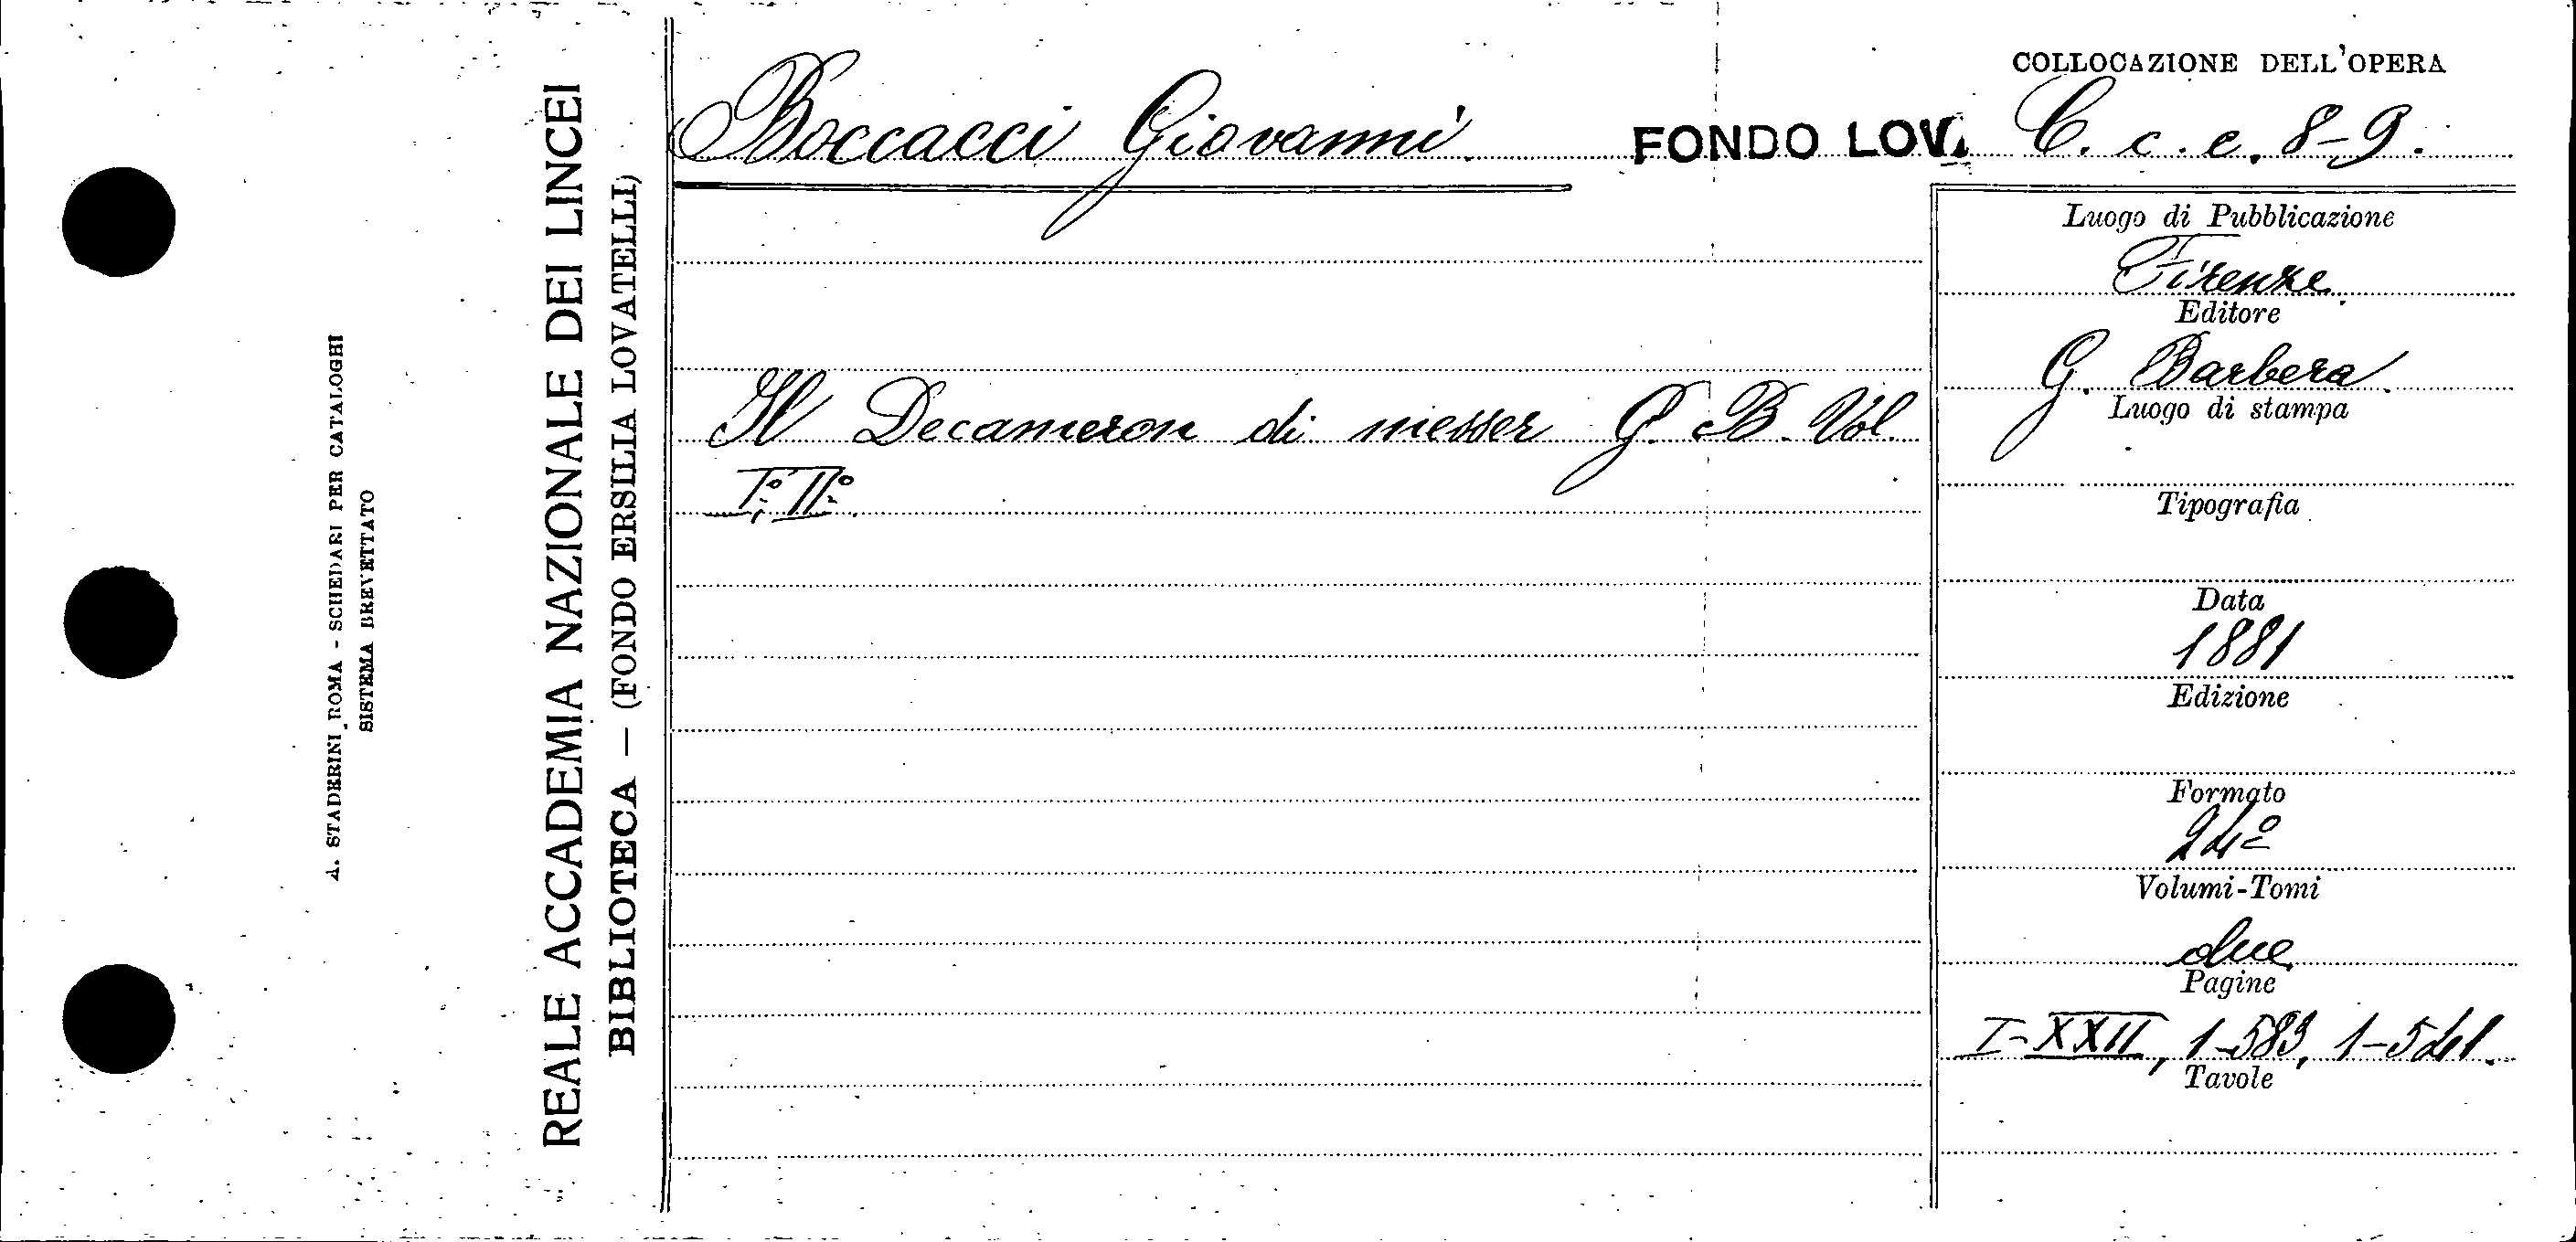 A. STADERINI ROMA - SCHEDARI PER CATALOGHI
SISTEMA BREVETTATO
REALE ACCADEMIA NAZIONALE DEI LINCEI
BIBLIOTECA — (FONDO ERSILIA LOVATELLI)
Boccacci Giovanni
FONDO LOV.
COLLOCAZIONE DELL'OPERA
C. c. e. 8-9.
Il Decameron di messer G. B. Vol.
I°, II°.
Luogo di Pubblicazione
Firenze
Editore
G. Barbera.
Luogo di stampa
Tipografia
Data
1881
Edizione
Formato
24º
Volumi-Tomi
due
Pagine
I-XXII, 1-583, 1-541.
Tavole